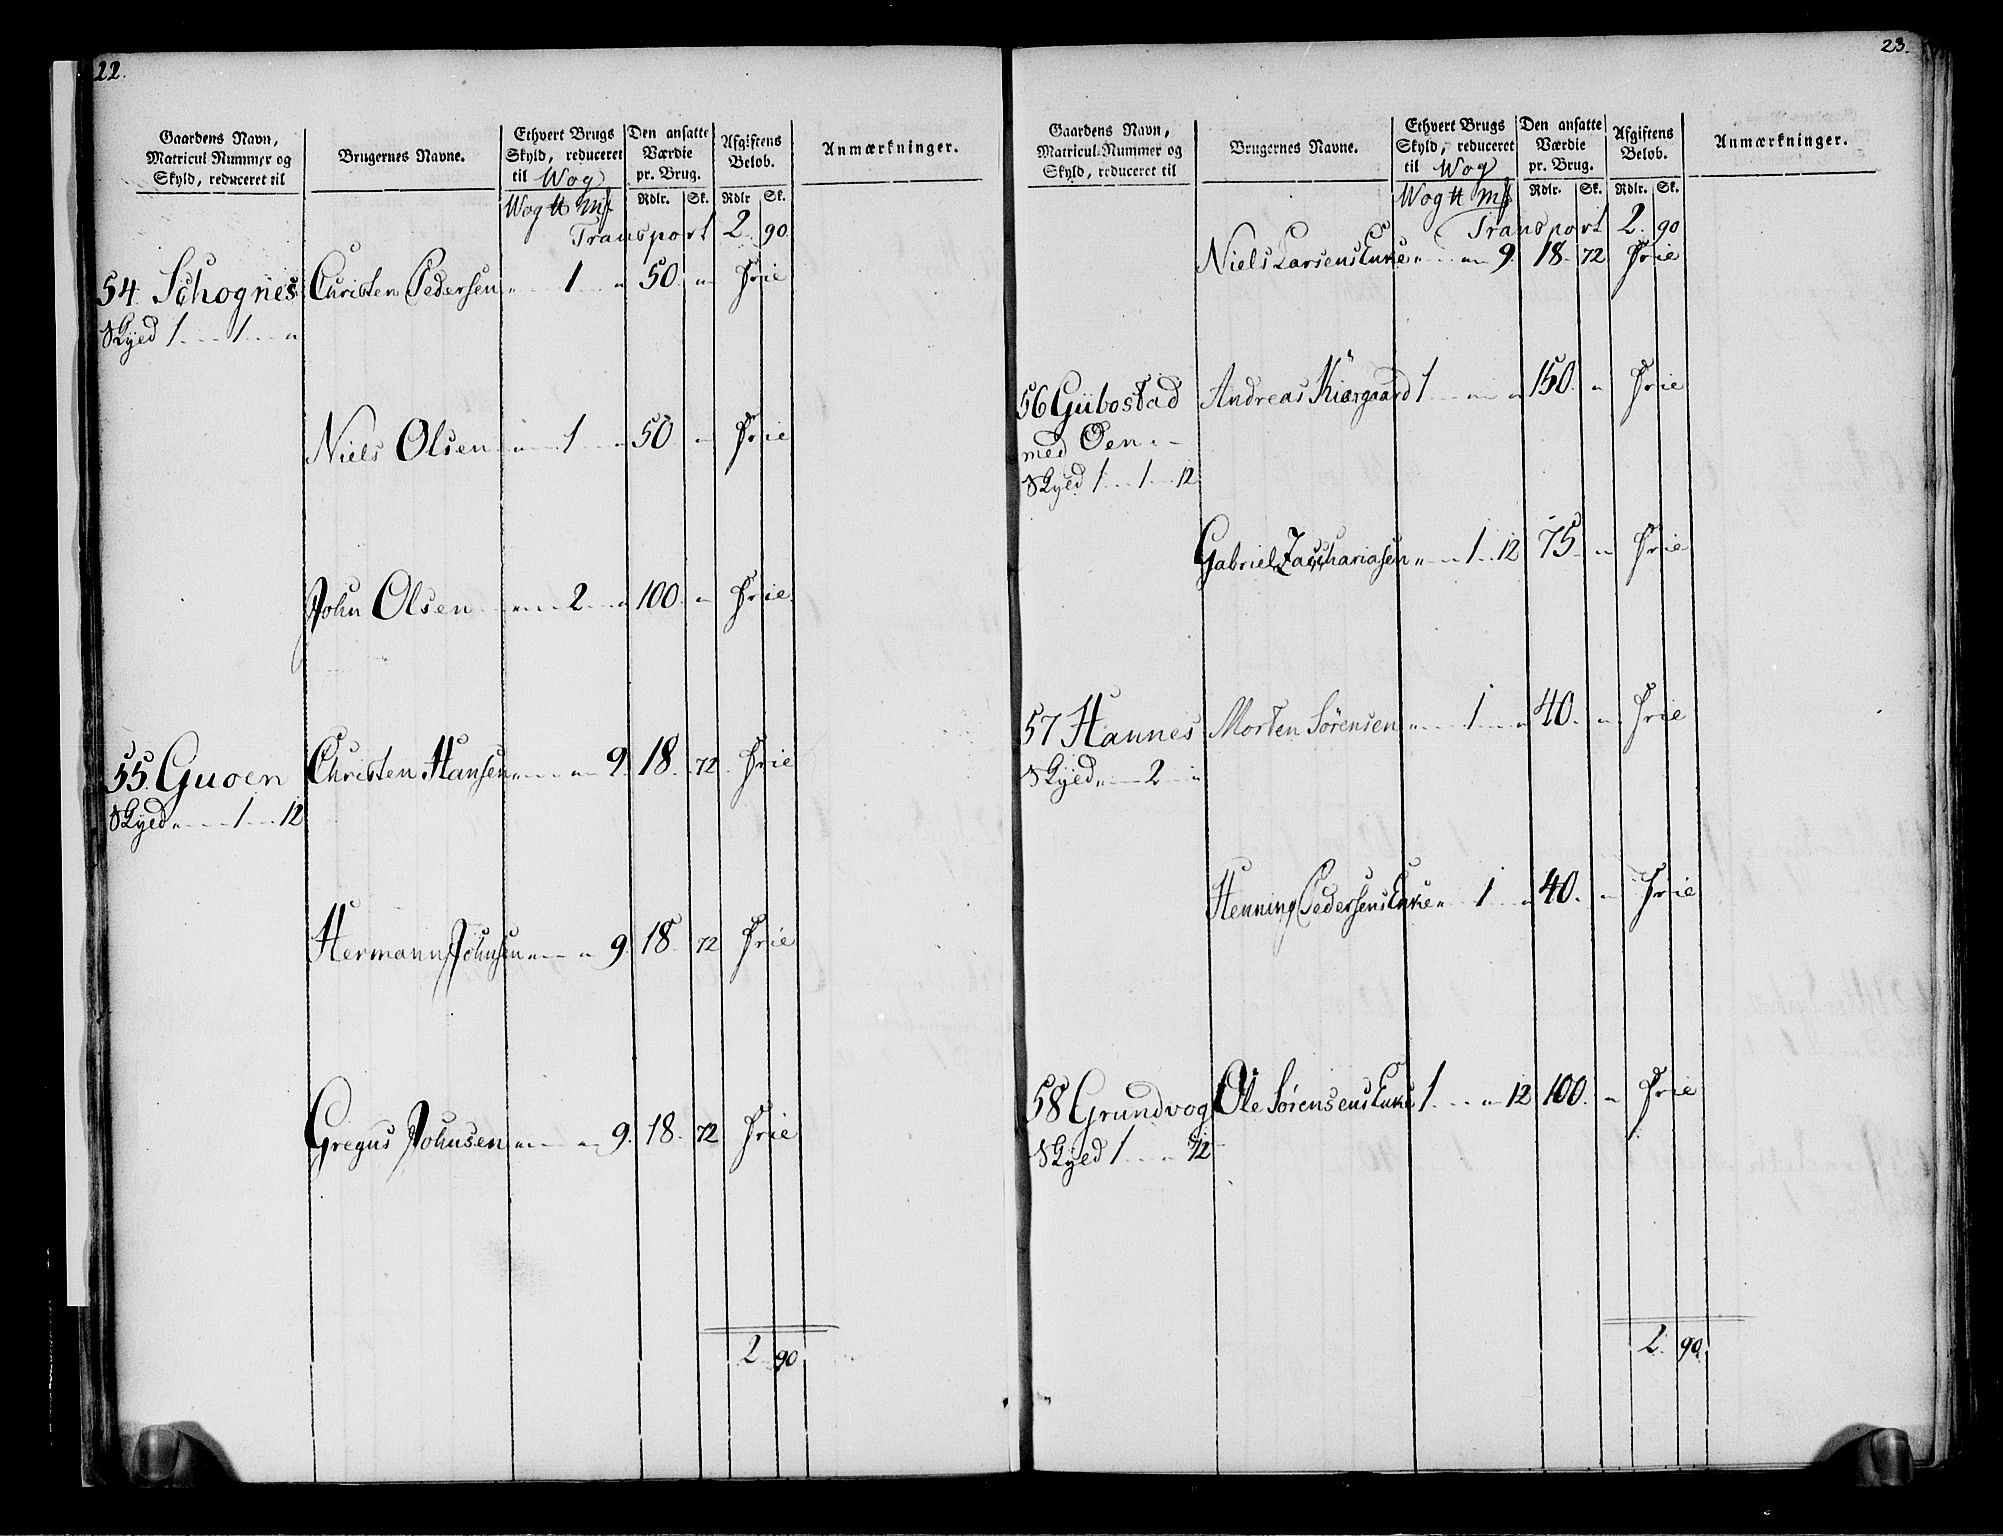 22.
Gaardens Navn, Matricul Nummer og Skyld, reduceret til | Brugernes Navne. | Ethvert Brugs Skyld, reduceret til Wog | Den ansatte Værdie pr. Brug. | Afgiftens Beløb. | Anmærkninger.
Wog ℔ mk | Rdlr. | Sk. | Rdlr | Sk.
Transport 2. 90
54. Schognes Christen Pedersen „ 1 „ 50 „ Frie
Skyed 1 1 „
Niels Olsen „ 1 „ 50 „ Frie
John Olsen „ 2 „ 100. „ Frie.
55. Guoen Christen Hansen „ „ 9. 18. 72. Frie
Skyed „ 1 12
Hermann Johnsen „ „ 9. 18. 72 Frie
Gregus Johnsen „ „ 9. 18. 72 Frie
2. 90
23.
Gaardens Navn, Matricul Nummer og Skyld, reduceret til | Brugernes Navne. | Ethvert Brugs Skyld, reduceret til Wog | Den ansatte Værdie pr. Brug. | Afgiftens Beløb. | Anmærkninger.
Wog ℔ mk | Rdlr. | Sk. | Rdlr. | Sk.
Transport 2. 90
Niels Larsens Enke „ „ 9 18. 72 Frie
56 Gübostad Andreas Kiærgaard 1 „ „ 150. „ Frie
med Øen.
Skyed 1 1 12
Gabriel Zachariasen „ 1 12 75 „ Frie
57 Hannes Morten Sørensen „ 1 „ 40. „ Frie
Skyed „ 2 „
Henning Pedersens Enke „ 1 „ 40. „ Frie
58 Grundvog Ole Sørensens Enke 1 „ 12 100. „ Frie
Skyed 1 „ 12
2. 90.